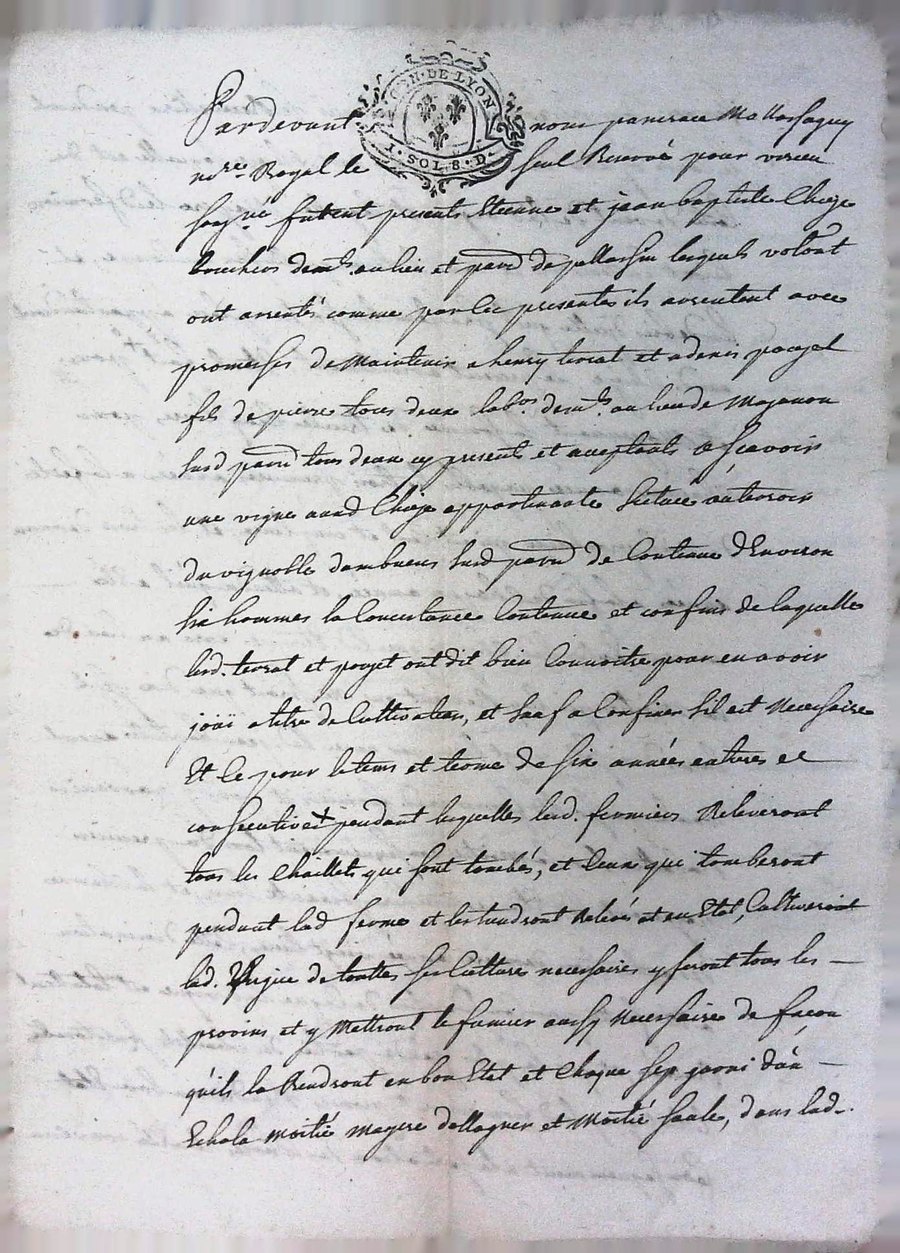 GEN. DE LYON
1. SOL. 8. D.
Pardevant nous pancrace Mattassaguy
nore. Royal le seul Reservé pour virieu
sogné. furent presents Etienne et jean baptiste Cheze
bouchers demts. au lieu et pard de pellussin lesquels volont
ont arentés comme par les presentes ils arentent avec
promesses de Maintenir a henry terrat et a denis poujet
fils de pierre tous deux labos. demts. au lieu de Mazonon
susd pard tous deux cy presents et aceptants a sçavoir
une vigne auxd Cheze appartenante scituée au teroir
du vignoble susd pard de Contenue d'Environ
six hommes la Consistance Contenue et confins de laquelle
lesd. terrat et poujet ont dit bien Connoitre pour en avoir
joüi a titre de Cultivateur, et sauf a Confiner sil est Necessaire
Et ce pour letems et terme de six années entieres et
consecutives pendant lesquelles lesd. fermiers Releveront
tous les Chaillets qui sont tombés, et Ceux qui tomberont
pendant lad ferme et les tiendront Relevés et en Etat, Cultiveront
lad. Vigne de touttes ses Culture necessaires y feront tous les —
provins et y Mettront le fumier aussy Necessaire de facon
qu'ils la Rendront en bon Etat et Chaque sep garni d'un —
Echala moitié et Moitié saule, dans lad.